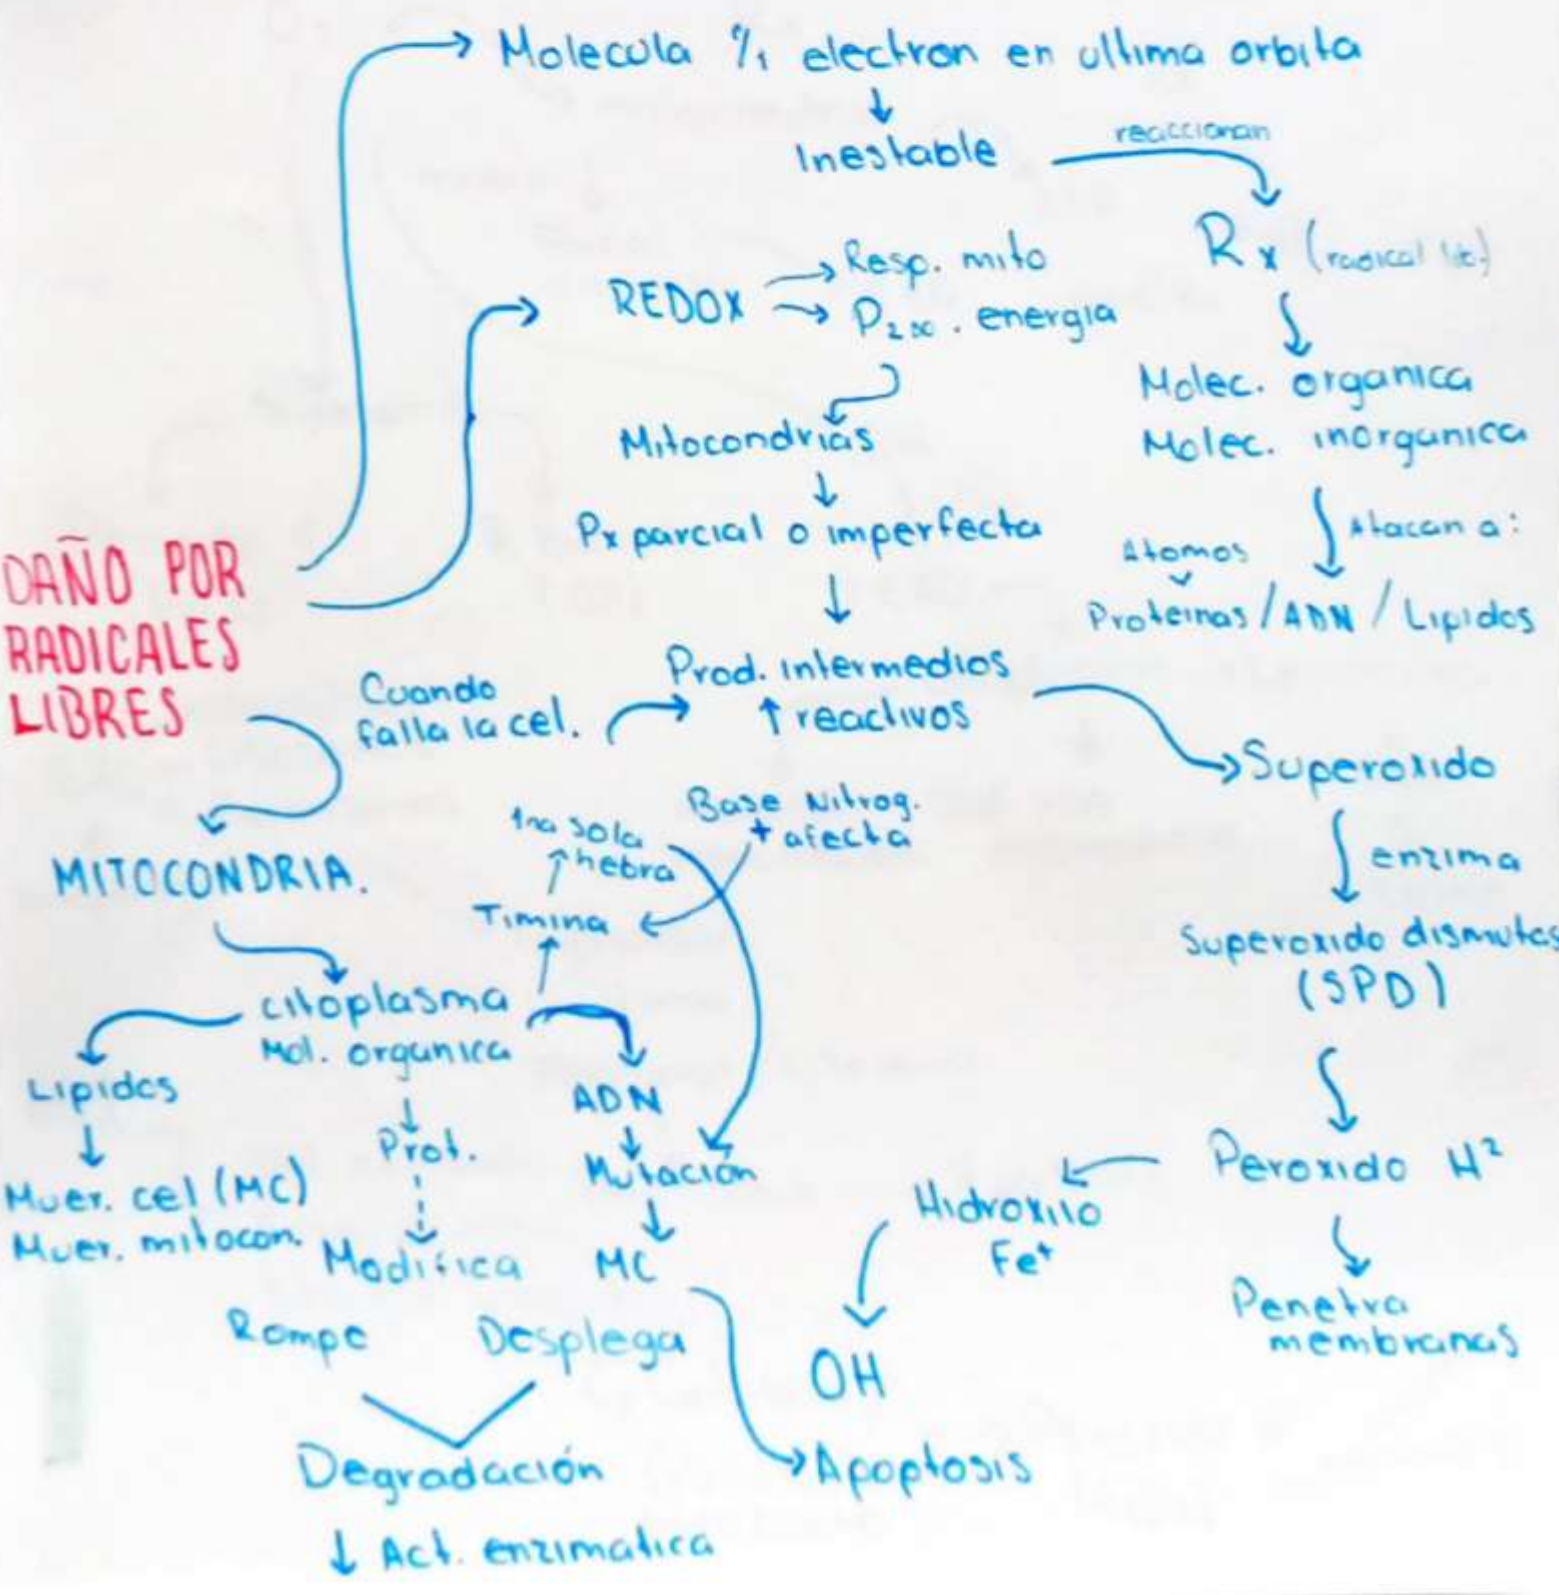 Molecula %1 electron en ultima orbita
Inestable
reaccionan
Rx (radical lib.)
Molec. organica
Molec. inorganica
Atacan a:
Atomos
Proteinas / ADN / Lipidos
REDOX
Resp. mito
energia
Mitocondrias
Px parcial o imperfecta
Prod. intermedios
↑ reactivos
Cuando
falla la cel.
DAÑO POR
RADICALES
LIBRES
Superoxido
enzima
Superoxido dismutas
(SPD)
Peroxido H²
Penetra
membranas
Hidroxilo
Fe⁺
OH
MITOCONDRIA.
citoplasma
Mol. organica
Base Nitrog.
+ afecta
Timina
sola
hebra
Lipidos
Muer. cel (MC)
Muer. mitocon.
Prot.
Modifica
Rompe
Desplega
Degradación
↓ Act. enzimatica
ADN
Mutación
MC
Apoptosis